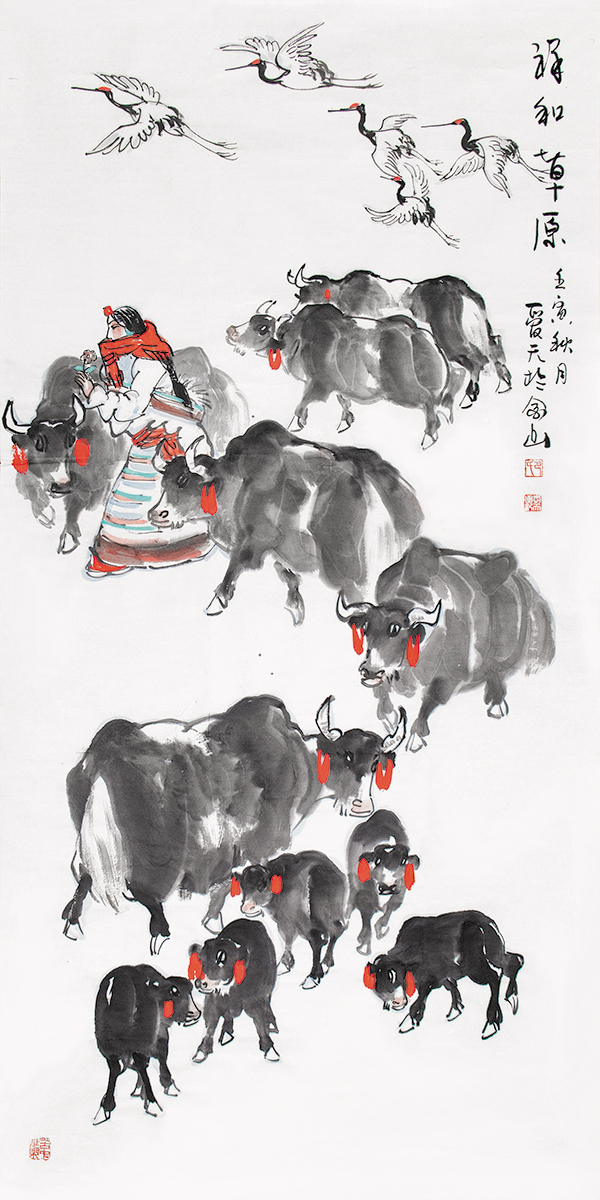 祥和草原
壬寅秋月
爱天於金山